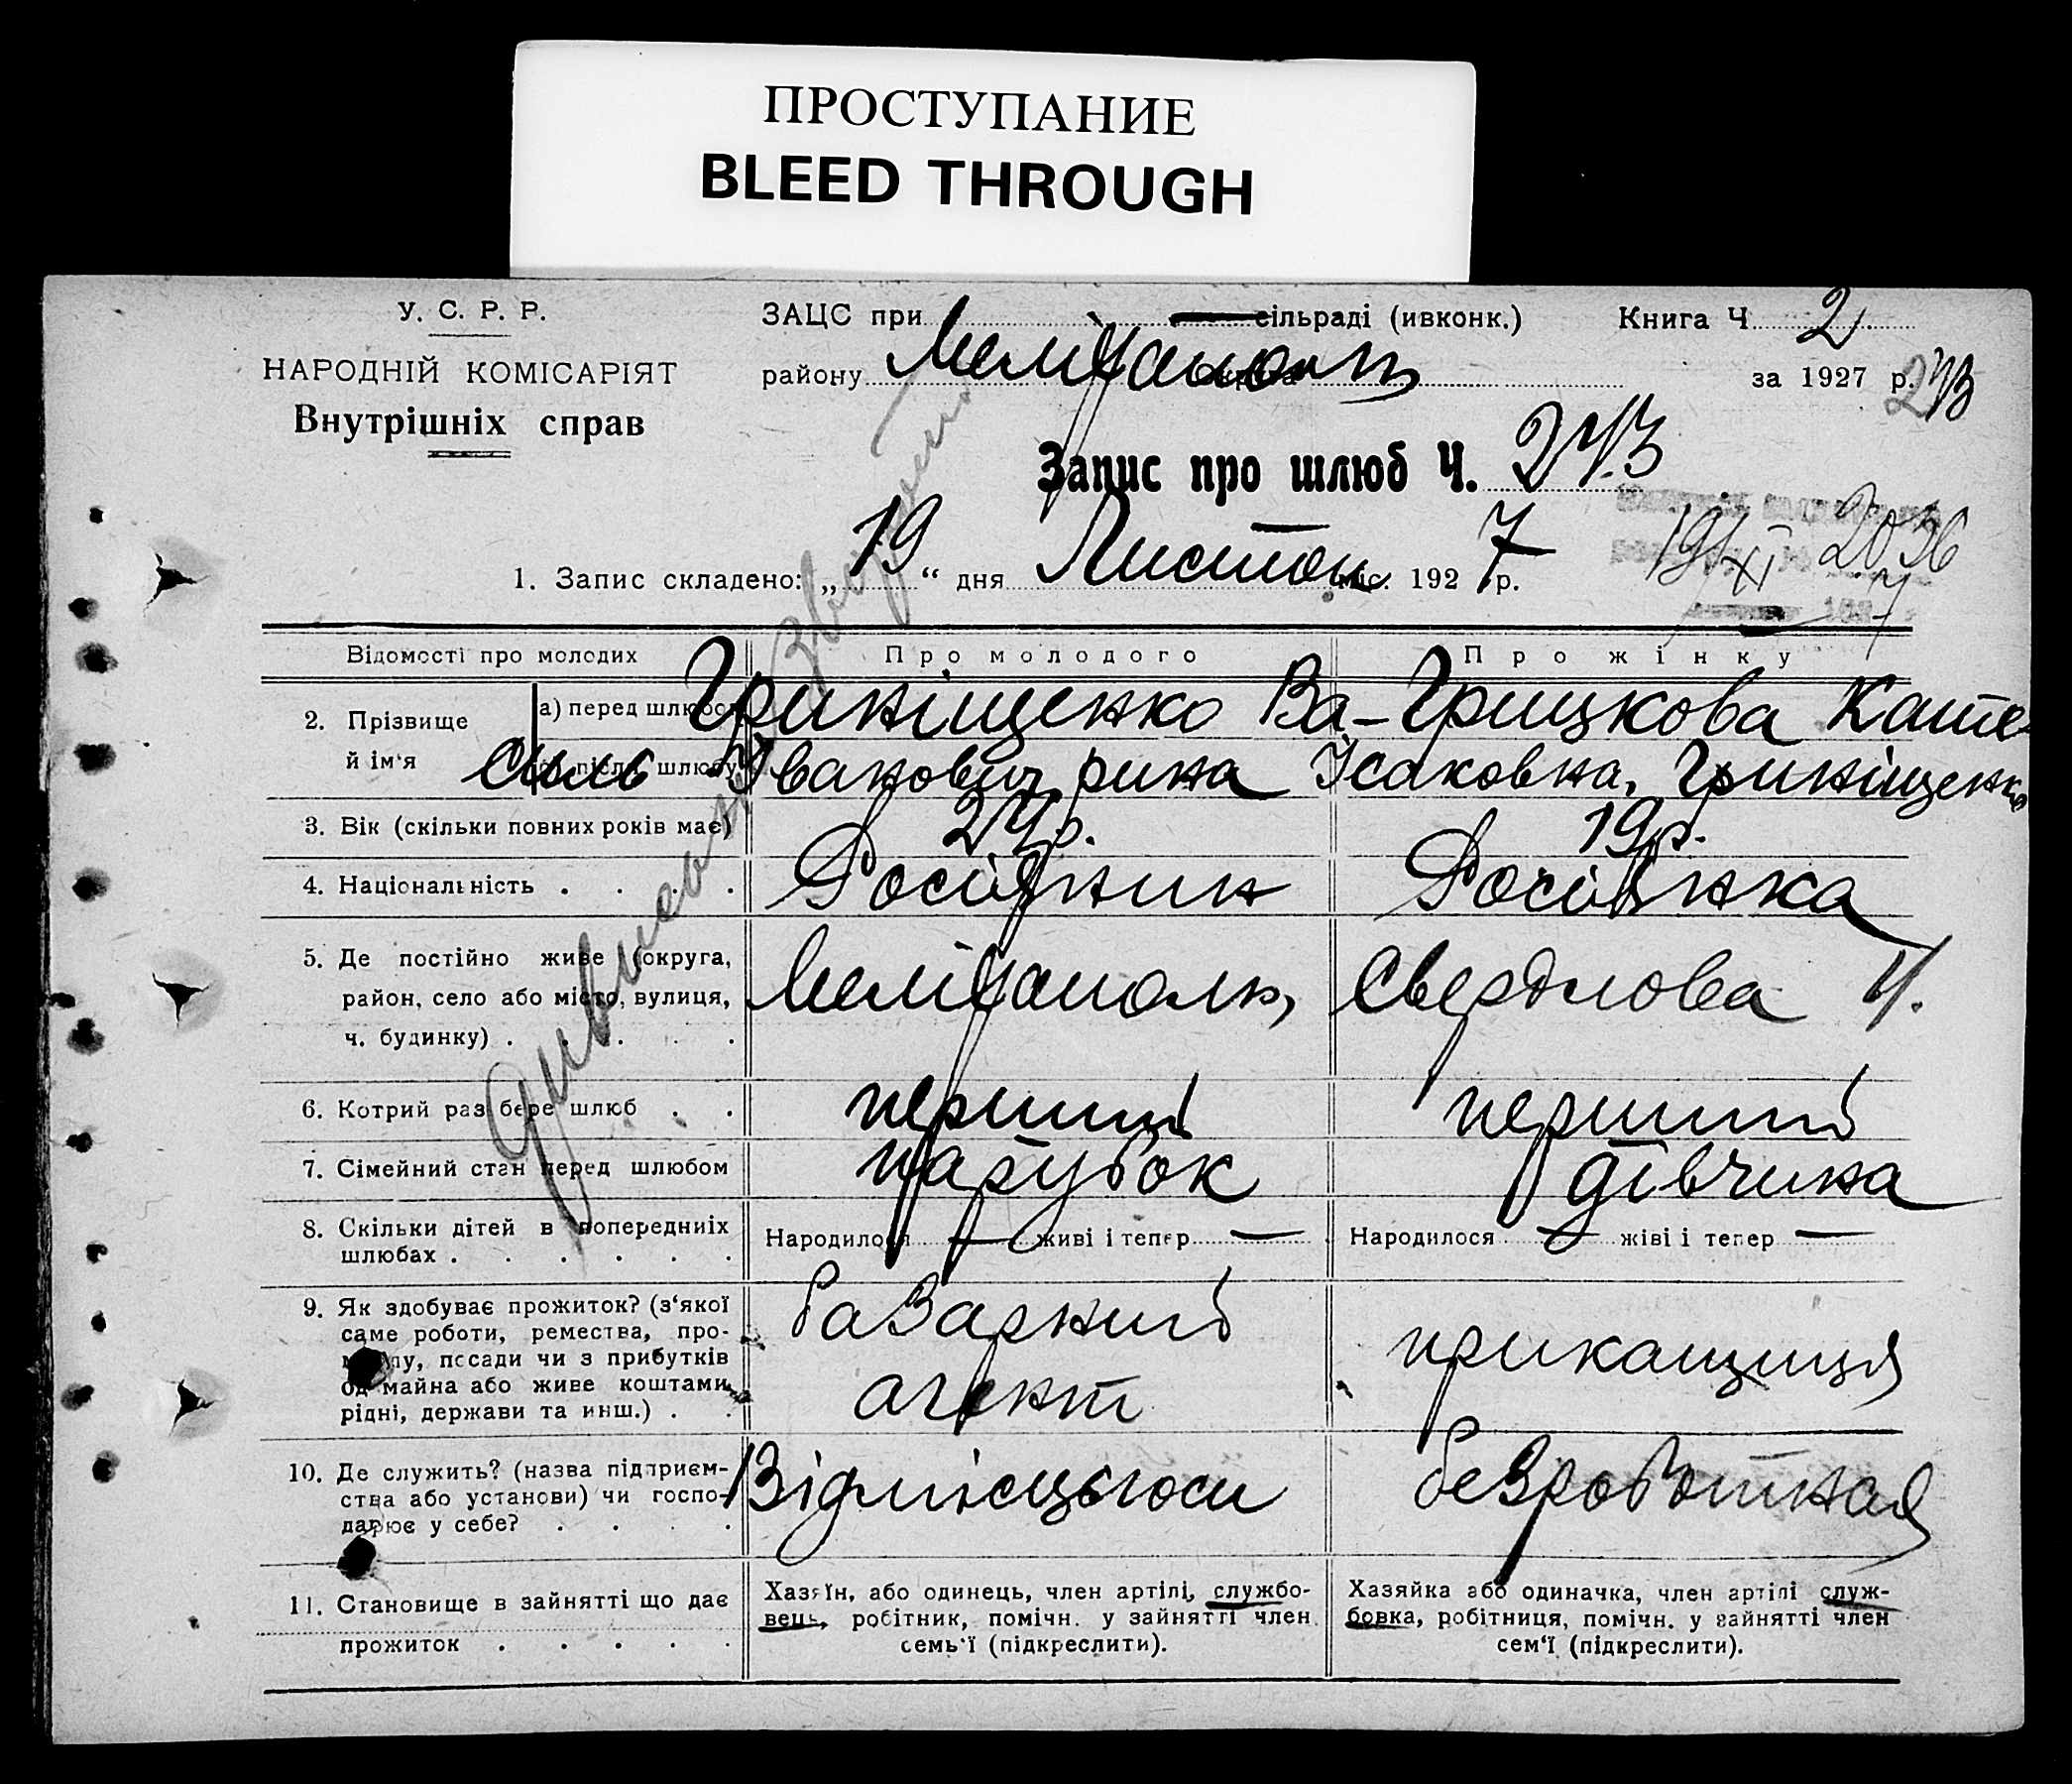 ПРОСТУПАНИЕ
BLEED THROUGH
У. С. Р. Р.
НАРОДНІЙ КОМІСАРІЯТ
Внутрішніх справ
ЗАЦС при сільраді (ивконк.)
району Мелітополь
Книга Ч 2
за 1927 р.
273
Запис про шлюб Ч. 273
1. Запис складено: „ 19 “ дня Листоп міс. 1927 р.
19/XI
Відомості про молодих
Про молодого
Про жінку
2. Прізвище й ім'я
а) перед шлюбом
після шлюбу
Гриніщенко Ва-
силь Іванович
Грицкова Кате-
рина Ісаковна, Гриніщенко
3. Вік (скільки повних років має)
24 р.
19 р.
4. Національність . . . .
Росіянин
Росіянка
5. Де постійно живе (округа,
район, село або місто, вулиця,
ч. будинку) . . . . .
Мелітополь,
Свердлова 4.
6. Котрий раз бере шлюб . .
перший
перший
7. Сімейний стан перед шлюбом
парубок
дівчина
8. Скільки дітей в попередниіх
шлюбах . . . . . .
Народилося — живі і тепер —
Народилося — жіві і тепер —
9. Як здобуває прожиток? (з'якої
саме роботи, ремества, про-
мислу, посади чи з прибутків
од майна або живе коштами
рідні, держави та инш.) . .
базарний
агент
прикащиця
10. Де служить? (назва підприєм-
ства або установи) чи госпо-
дарює у себе? . . . .
Відмісцьгоси
безроботная
11. Становище в зайнятті що дає
прожиток . . . . .
Хазяїн, або одинець, член артілі, службо-
вець, робітник, помічн. у зайнятті член
семь'ї (підкреслити).
Хазяйка або одиначка, член артілі служ-
бовка, робітниця, помічн. у зайнятті член
сем'ї (підкреслити).